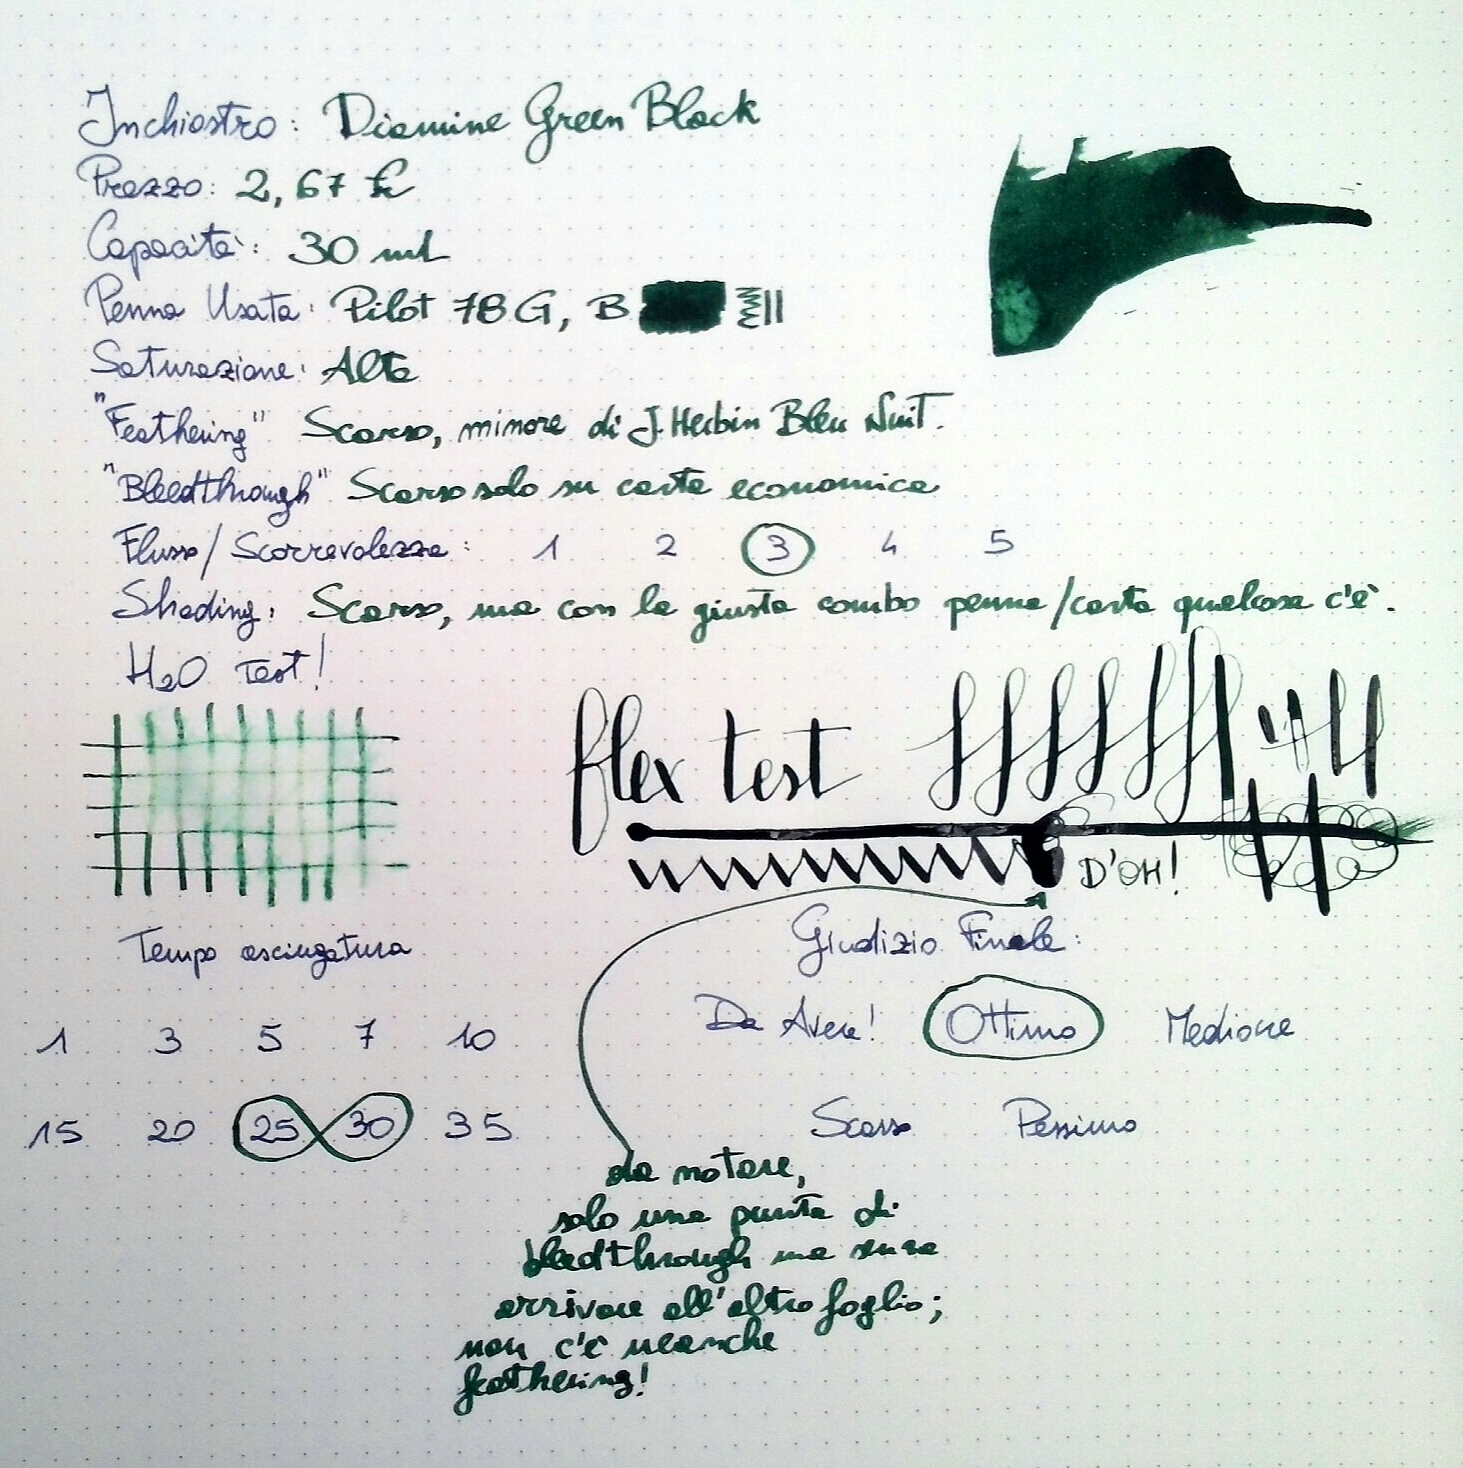 Inchiostro: Diamine Green Black
Prezzo: 2,67 £
Capacità: 30 ml
Penna Usata: Pilot 78G, B
Saturazione: Alta
"Feathering" Scarso, minore di J. Herbin Bleu Nuit.
"Bleedthrough" Scarso solo su carta economica
Flusso/Scorrevolezza: 1 2 3 4 5
Shading: Scarso, ma con la giusta combo penna/carta qualcosa c'è.
H2O Test!
flex test
D'OH!
Tempo asciugatura
1 3 5 7 10
15 20 25 30 35
Giudizio Finale:
Da Avere! Ottimo Mediocre
Scarso Pessimo
da notare,
solo una punta di
bleedthrough ma senza
arrivare all'altro foglio;
non c'è neanche
feathering!